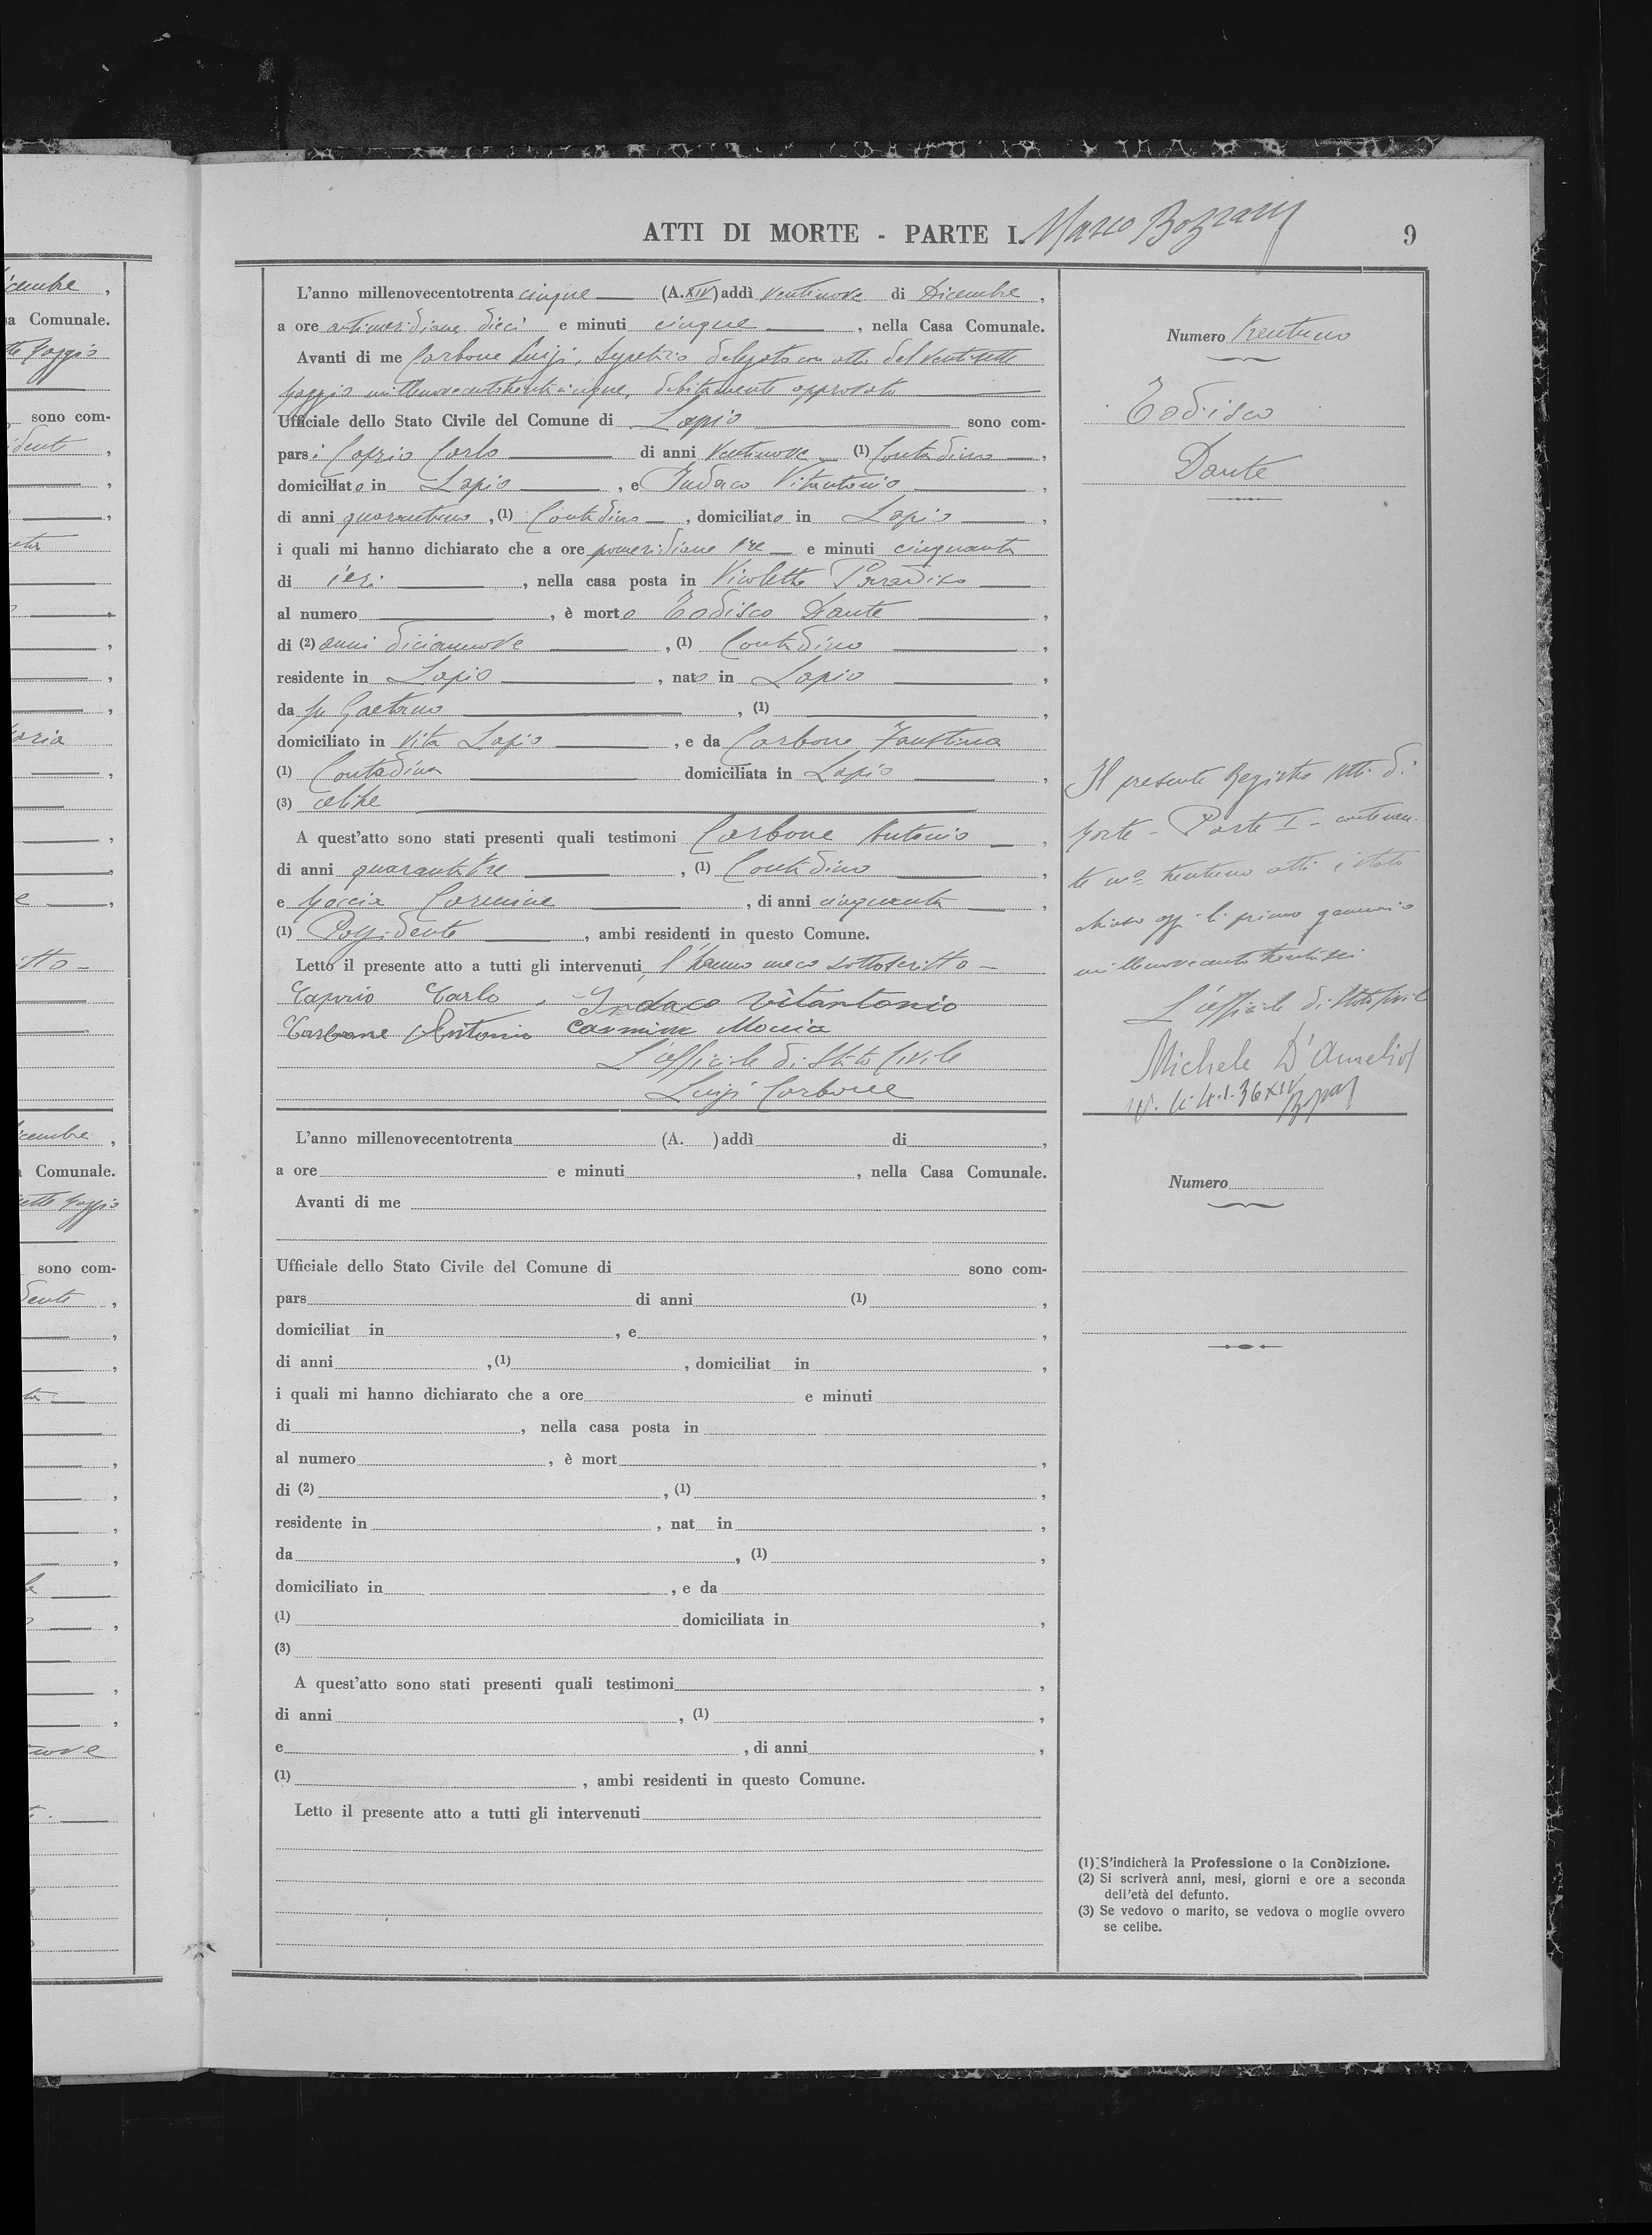 ATTI DI MORTE - PARTE I. Marco Bozzany
9
L'anno millenovecentotrenta cinque (A. XIV) addì ventinove di Dicembre,
a ore antimeridiane dieci e minuti cinque, nella Casa Comunale.
Avanti di me Carbone Luigi, Segretario delegato con atto del ventisette
Maggio millenovecentotrentacinque, debitamente approvato
Ufficiale dello Stato Civile del Comune di Lapio sono com-
parsi Caprio Carlo di anni ventinove (1) Contadino,
domiciliato in Lapio, e Indaco Vitantonio,
di anni quarantuno, (1) Contadino, domiciliato in Lapio,
i quali mi hanno dichiarato che a ore pomeridiane tre e minuti cinquanta
di ieri, nella casa posta in Vicoletto Paradiso
al numero, è morto Todisco Dante,
di (2) anni diciannove, (1) Contadino,
residente in Lapio, nato in Lapio,
da fu Gaetano, (1),
domiciliato in vita Lapio, e da Carbone Faustina
(1) Contadina domiciliata in Lapio,
(3) celibe
A quest'atto sono stati presenti quali testimoni Carbone Antonio,
di anni quarantatre, (1) Contadino,
e Moccia Carmine, di anni cinquanta,
(1) Possidente, ambi residenti in questo Comune.
Letto il presente atto a tutti gli intervenuti l'hanno meco sottoscritto -
Caprio Carlo, Indaco Vitantonio
Carbone Antonio Carmine Moccia
L'ufficiale di Stato Civile
Luigi Carbone
Numero trentuno
Todisco
Dante
Il presente Registro Atti di
Morte - Parte I - contenen-
te no trentuno atti è stato
chiuso oggi li primo gennaio
millenovecentotrentasei
L'ufficiale di Stato Civile
Michele D'Amelio
L'anno millenovecentotrenta (A. ) addì di,
a ore e minuti, nella Casa Comunale.
Avanti di me
Ufficiale dello Stato Civile del Comune di sono com-
pars di anni (1),
domiciliat in, e,
di anni, (1), domiciliat in,
i quali mi hanno dichiarato che a ore e minuti
di, nella casa posta in
al numero, è mort,
di (2), (1),
residente in, nat in,
da, (1),
domiciliato in, e da
(1) domiciliata in,
(3)
A quest'atto sono stati presenti quali testimoni,
di anni, (1),
e, di anni,
(1), ambi residenti in questo Comune.
Letto il presente atto a tutti gli intervenuti
Numero
(1) S'indicherà la Professione o la Condizione.
(2) Si scriverà anni, mesi, giorni e ore a seconda
dell'età del defunto.
(3) Se vedovo o marito, se vedova o moglie ovvero
se celibe.